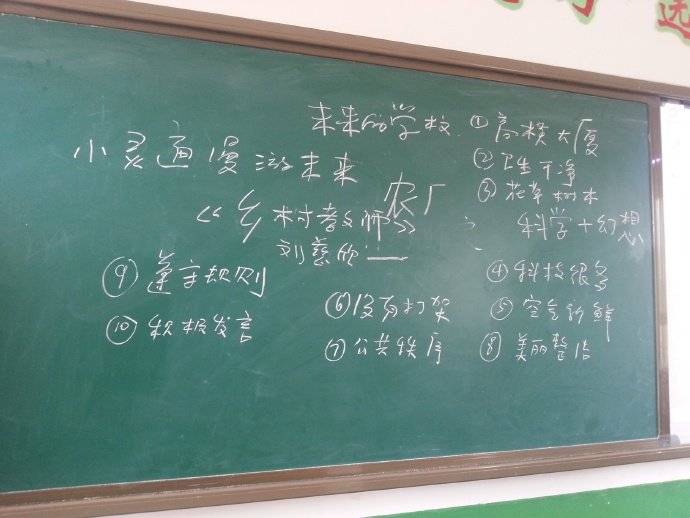 未来的学校 ① 高楼大厦
② 卫生干净
③ 花草树木
小灵通漫游未来
农厂
科学+幻想
《乡村教师》
刘慈欣
④ 科技很多
⑨ 遵守规则
⑥ 没有打架
⑤ 空气新鲜
⑩ 积极发言
⑦ 公共秩序
⑧ 美丽整洁